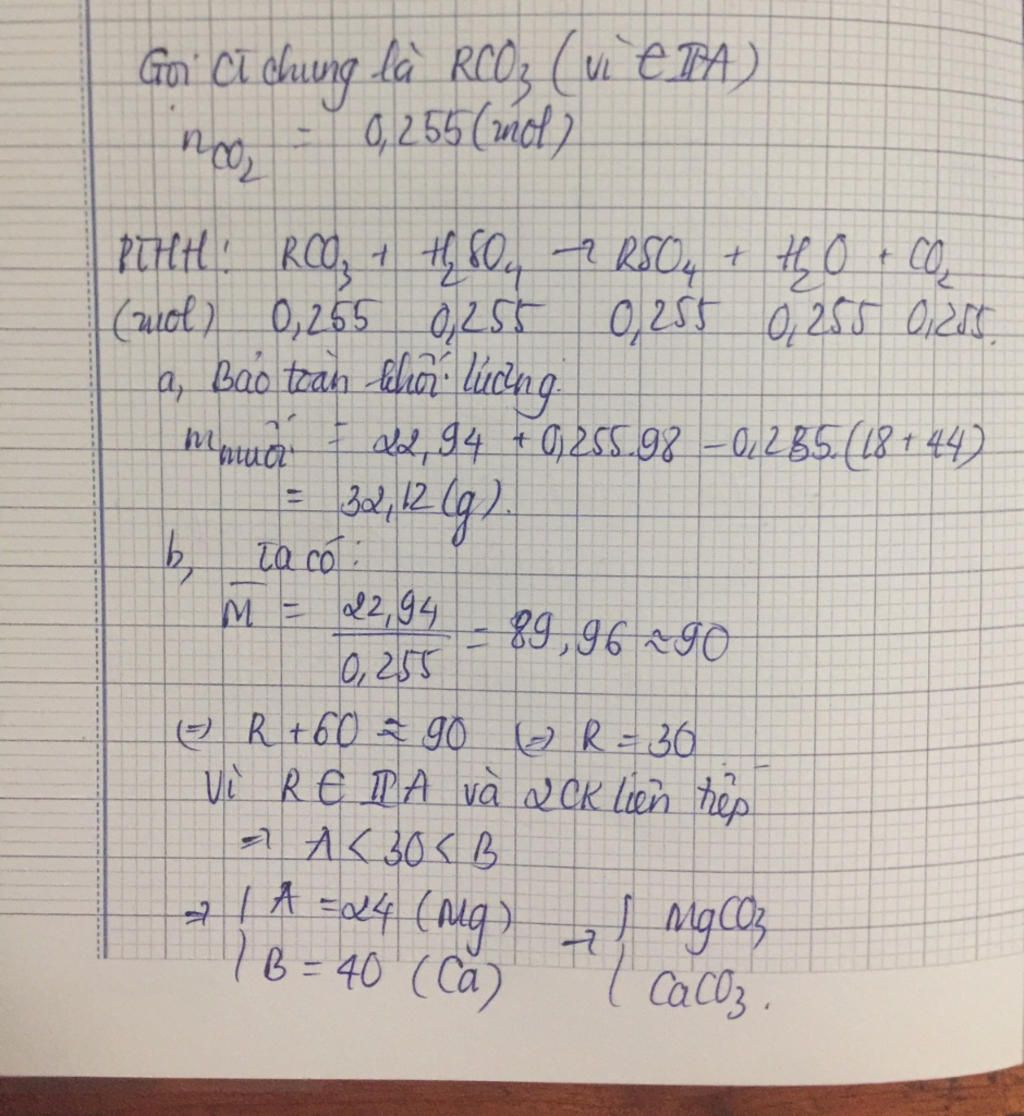 Gọi CT chung là RCO₃ (vì ∈ IIA)
nCO₂ = 0,255 (mol)
PTHH: RCO₃ + H₂SO₄ → RSO₄ + H₂O + CO₂
(mol) 0,255 0,255 0,255 0,255 0,255.
a, Bảo toàn khối lượng.
m muối = 22,94 + 0,255.98 - 0,255.(18 + 44)
= 32,12 (g).
b, Ta có:
M̅ = 22,94 / 0,255 = 89,96 ≈ 90
(=) R + 60 ≈ 90 (=) R = 30
Vì R ∈ IIA và 2CK liên tiếp
=> A < 30 < B
=> { A = 24 (Mg) → { MgCO₃
{ B = 40 (Ca) { CaCO₃.